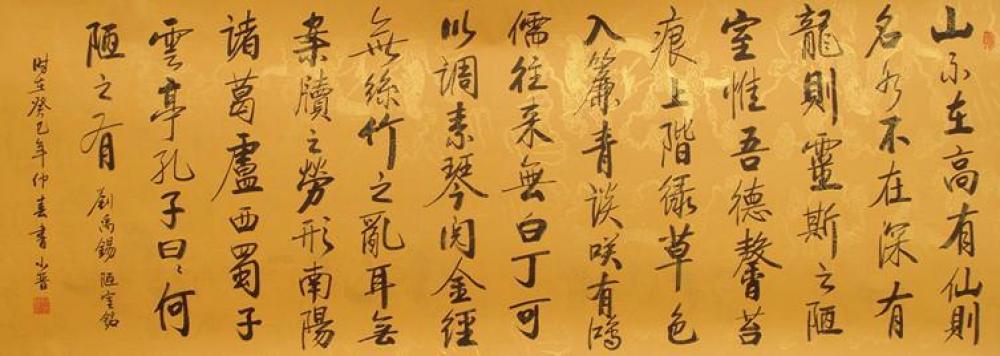 山不在高有仙則
名水不在深有
龍則靈斯之陋
室惟吾德馨苔
痕上階綠草色
入簾青談咲有鴻
儒往来無白丁可
以調素琴閲金經
無絲竹之亂耳無
案牘之勞形南陽
諸葛盧西蜀子
雲亭孔子曰何
陋之有 劉禹錫 陋室銘
时在癸巳年仲春書